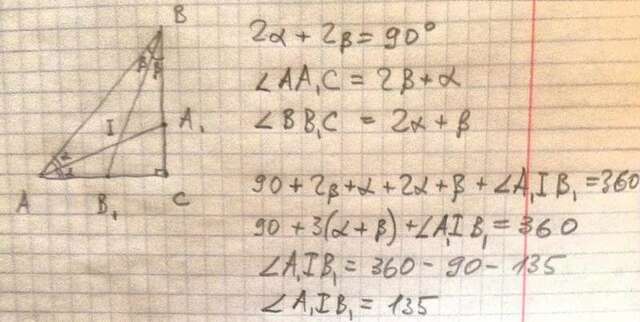 B
β β
I
A₁
α
α
A
B₁
C
2α + 2β = 90°
∠AA₁C = 2β + α
∠BB₁C = 2α + β
90 + 2β + α + 2α + β + ∠A₁IB₁ = 360
90 + 3(α + β) + ∠A₁IB₁ = 360
∠A₁IB₁ = 360 - 90 - 135
∠A₁IB₁ = 135